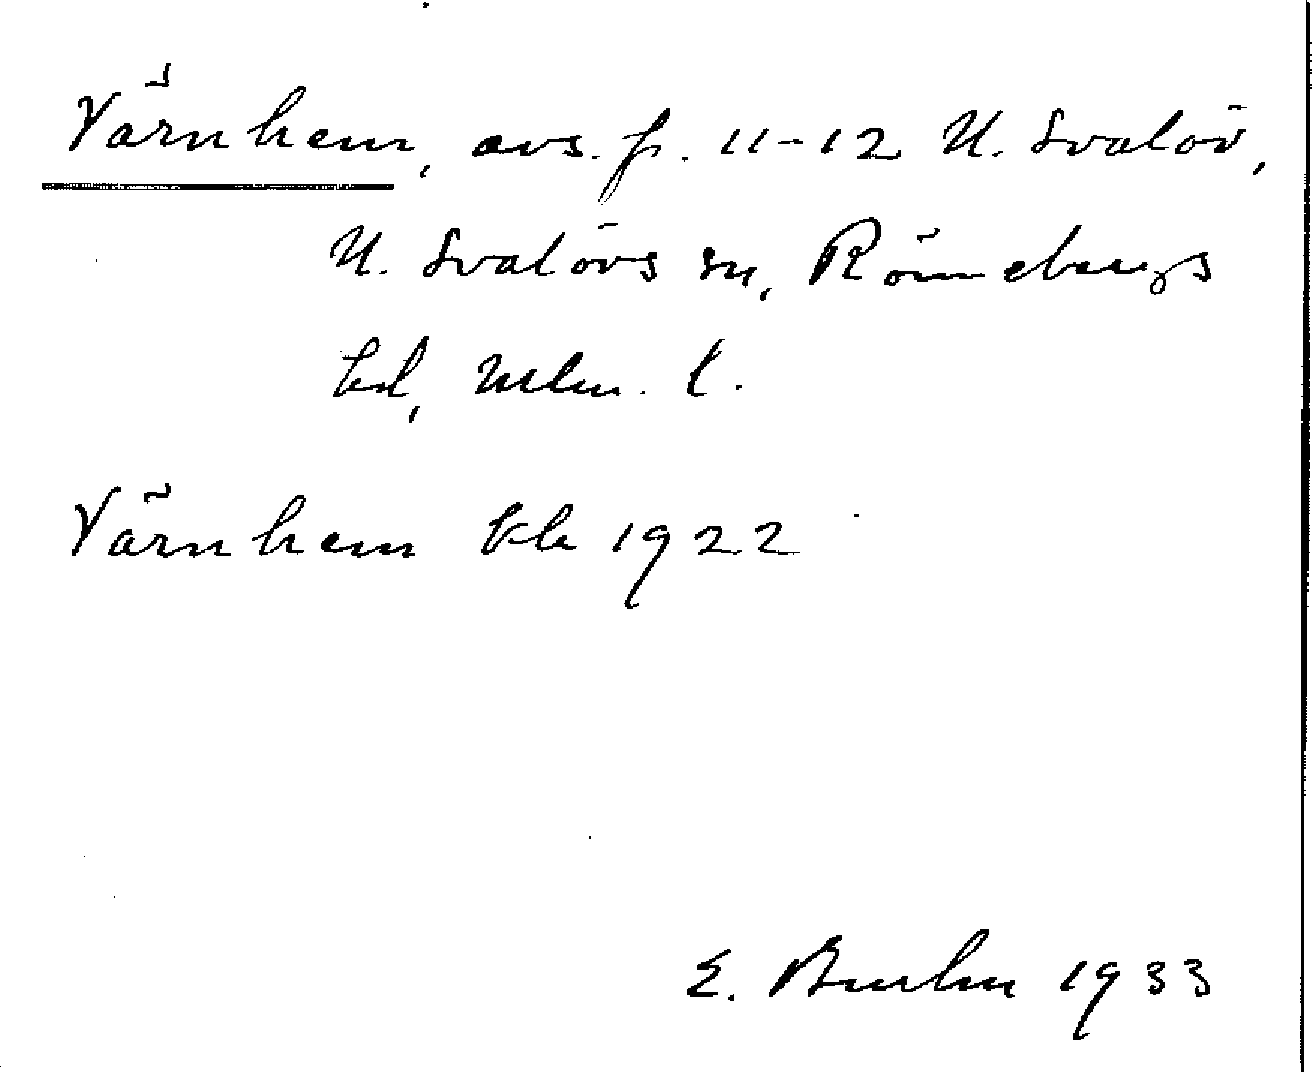 Värnhem, avs. fr. 11-12 N. Svalöv,
N. Svalövs sn, Rönnebergs
hd, Mlm. l.
Värnhem kb 1922
E. 1933